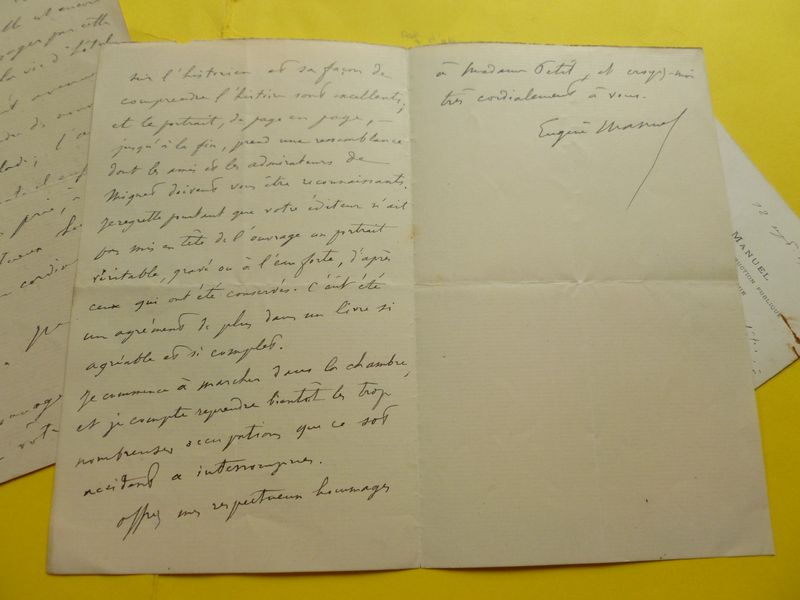 sur l'historien et sa façon de
comprendre l'histoire sont excellents;
et le portrait, de page en page, –
jusqu'à la fin, prend une ressemblance
dont les amis et les admirateurs de
Mignet doivent vous être reconnaissants.
Je regrette pourtant que votre éditeur n'ait
pas mis en tête de l'ouvrage un portrait
véritable, gravé ou à l'eau forte, d'après
ceux qui ont été conservés. C'eût été
un agrément de plus dans un livre si
agréable et si complet.
Je commence à marcher dans la chambre,
et je compte reprendre bientôt les trop
nombreuses occupations que ce sot
accident a interrompues.
Offrez mes respectueux hommages
à Madame Petit, et croyez-moi
très cordialement à vous.
Eugène Manuel
MANUEL